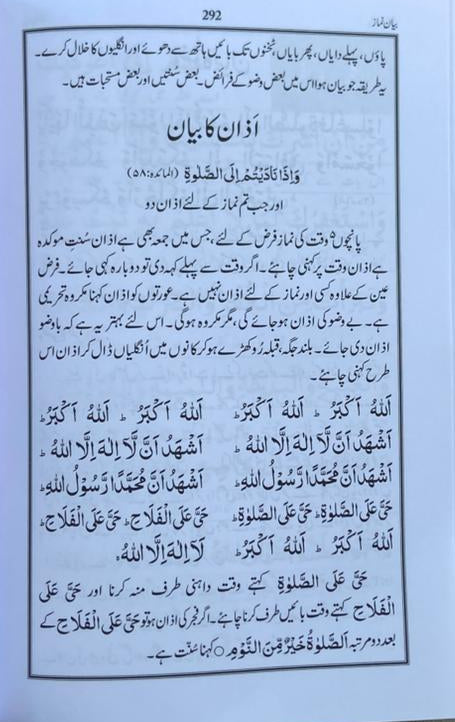 بیان نماز
292
پاؤں، پہلے دایاں، پھر بایاں، ٹخنوں تک بائیں ہاتھ سے دھوئے اور انگلیوں کا خلال کرے۔
یہ طریقہ جو بیان ہوا اس میں بعض وضو کے فرائض۔ بعض سنتیں اور بعض مستحبات ہیں۔
اذان کا بیان
وَاِذَا نَادَيْتُمْ اِلَى الصَّلٰوةِ (المائدہ:۵۸)
اور جب تم نماز کے لئے اذان دو
پانچوں وقت کی نماز فرض کے لئے، جس میں جمعہ بھی ہے اذان سنت موکدہ
ہے اذان وقت پر کہنی چاہئے۔ اگر وقت سے پہلے کہہ دی تو دوبارہ کہی جائے۔ فرض
عین کے علاوہ کسی اور نماز کے لئے اذان نہیں ہے۔ عورتوں کو اذان کہنا مکروہ تحریمی
ہے۔ بے وضو کی اذان ہو جائے گی، مگر مکروہ ہوگی۔ اس لئے بہتر یہ ہے کہ باوضو
اذان دی جائے۔ بلند جگہ، قبلہ رُو کھڑے ہو کر کانوں میں اُنگلیاں ڈال کر اذان اس
طرح کہنی چاہئے۔
اَللهُ اَكْبَرُ ؕ اَللهُ اَكْبَرُ ؕ اَللهُ اَكْبَرُ ؕ اَللهُ اَكْبَرُ ؕ
اَشْهَدُ اَنْ لَّآ اِلٰهَ اِلَّا اللهُ ؕ اَشْهَدُ اَنْ لَّآ اِلٰهَ اِلَّا اللهُ ؕ
اَشْهَدُ اَنَّ مُحَمَّدًا رَّسُوْلُ اللهِ ؕ اَشْهَدُ اَنَّ مُحَمَّدًا رَّسُوْلُ اللهِ ؕ
حَيَّ عَلَى الصَّلٰوةِ ؕ حَيَّ عَلَى الصَّلٰوةِ ؕ حَيَّ عَلَى الْفَلَاحِ ؕ حَيَّ عَلَى الْفَلَاحِ ؕ
اَللهُ اَكْبَرُ ؕ اَللهُ اَكْبَرُ ؕ لَآ اِلٰهَ اِلَّا اللهُ ؕ
حَيَّ عَلَى الصَّلٰوةِ کہتے وقت داہنی طرف منہ کرنا اور حَيَّ عَلَى
الْفَلَاحِ کہتے وقت بائیں طرف کرنا چاہئے۔ اگر فجر کی اذان ہو تو حَيَّ عَلَى الْفَلَاحِ کے
بعد دو مرتبہ اَلصَّلٰوةُ خَيْرٌ مِّنَ النَّوْمِ ○ کہنا سنّت ہے۔